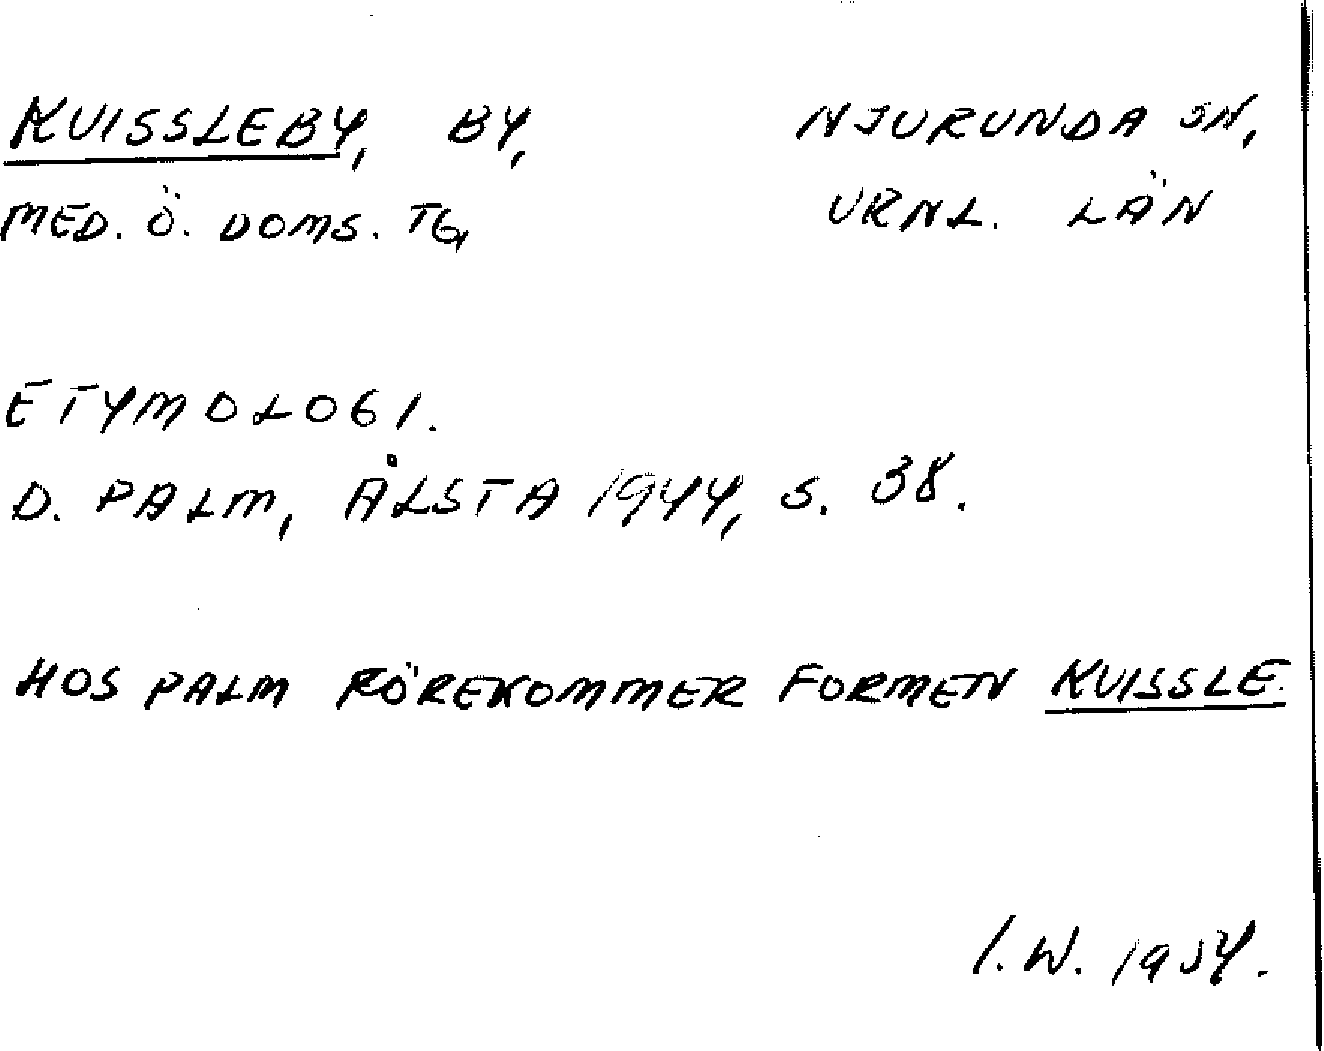 KVISSLEBY, BY, NJURUNDA SN,
MED. Ö. DOMS. TG, VRNL. LÄN
ETYMOLOGI.
D. PALM, ÅLSTA 1944, S. 38.
HOS PALM FÖREKOMMER FORMEN KVISSLE.
I. W. 1954.